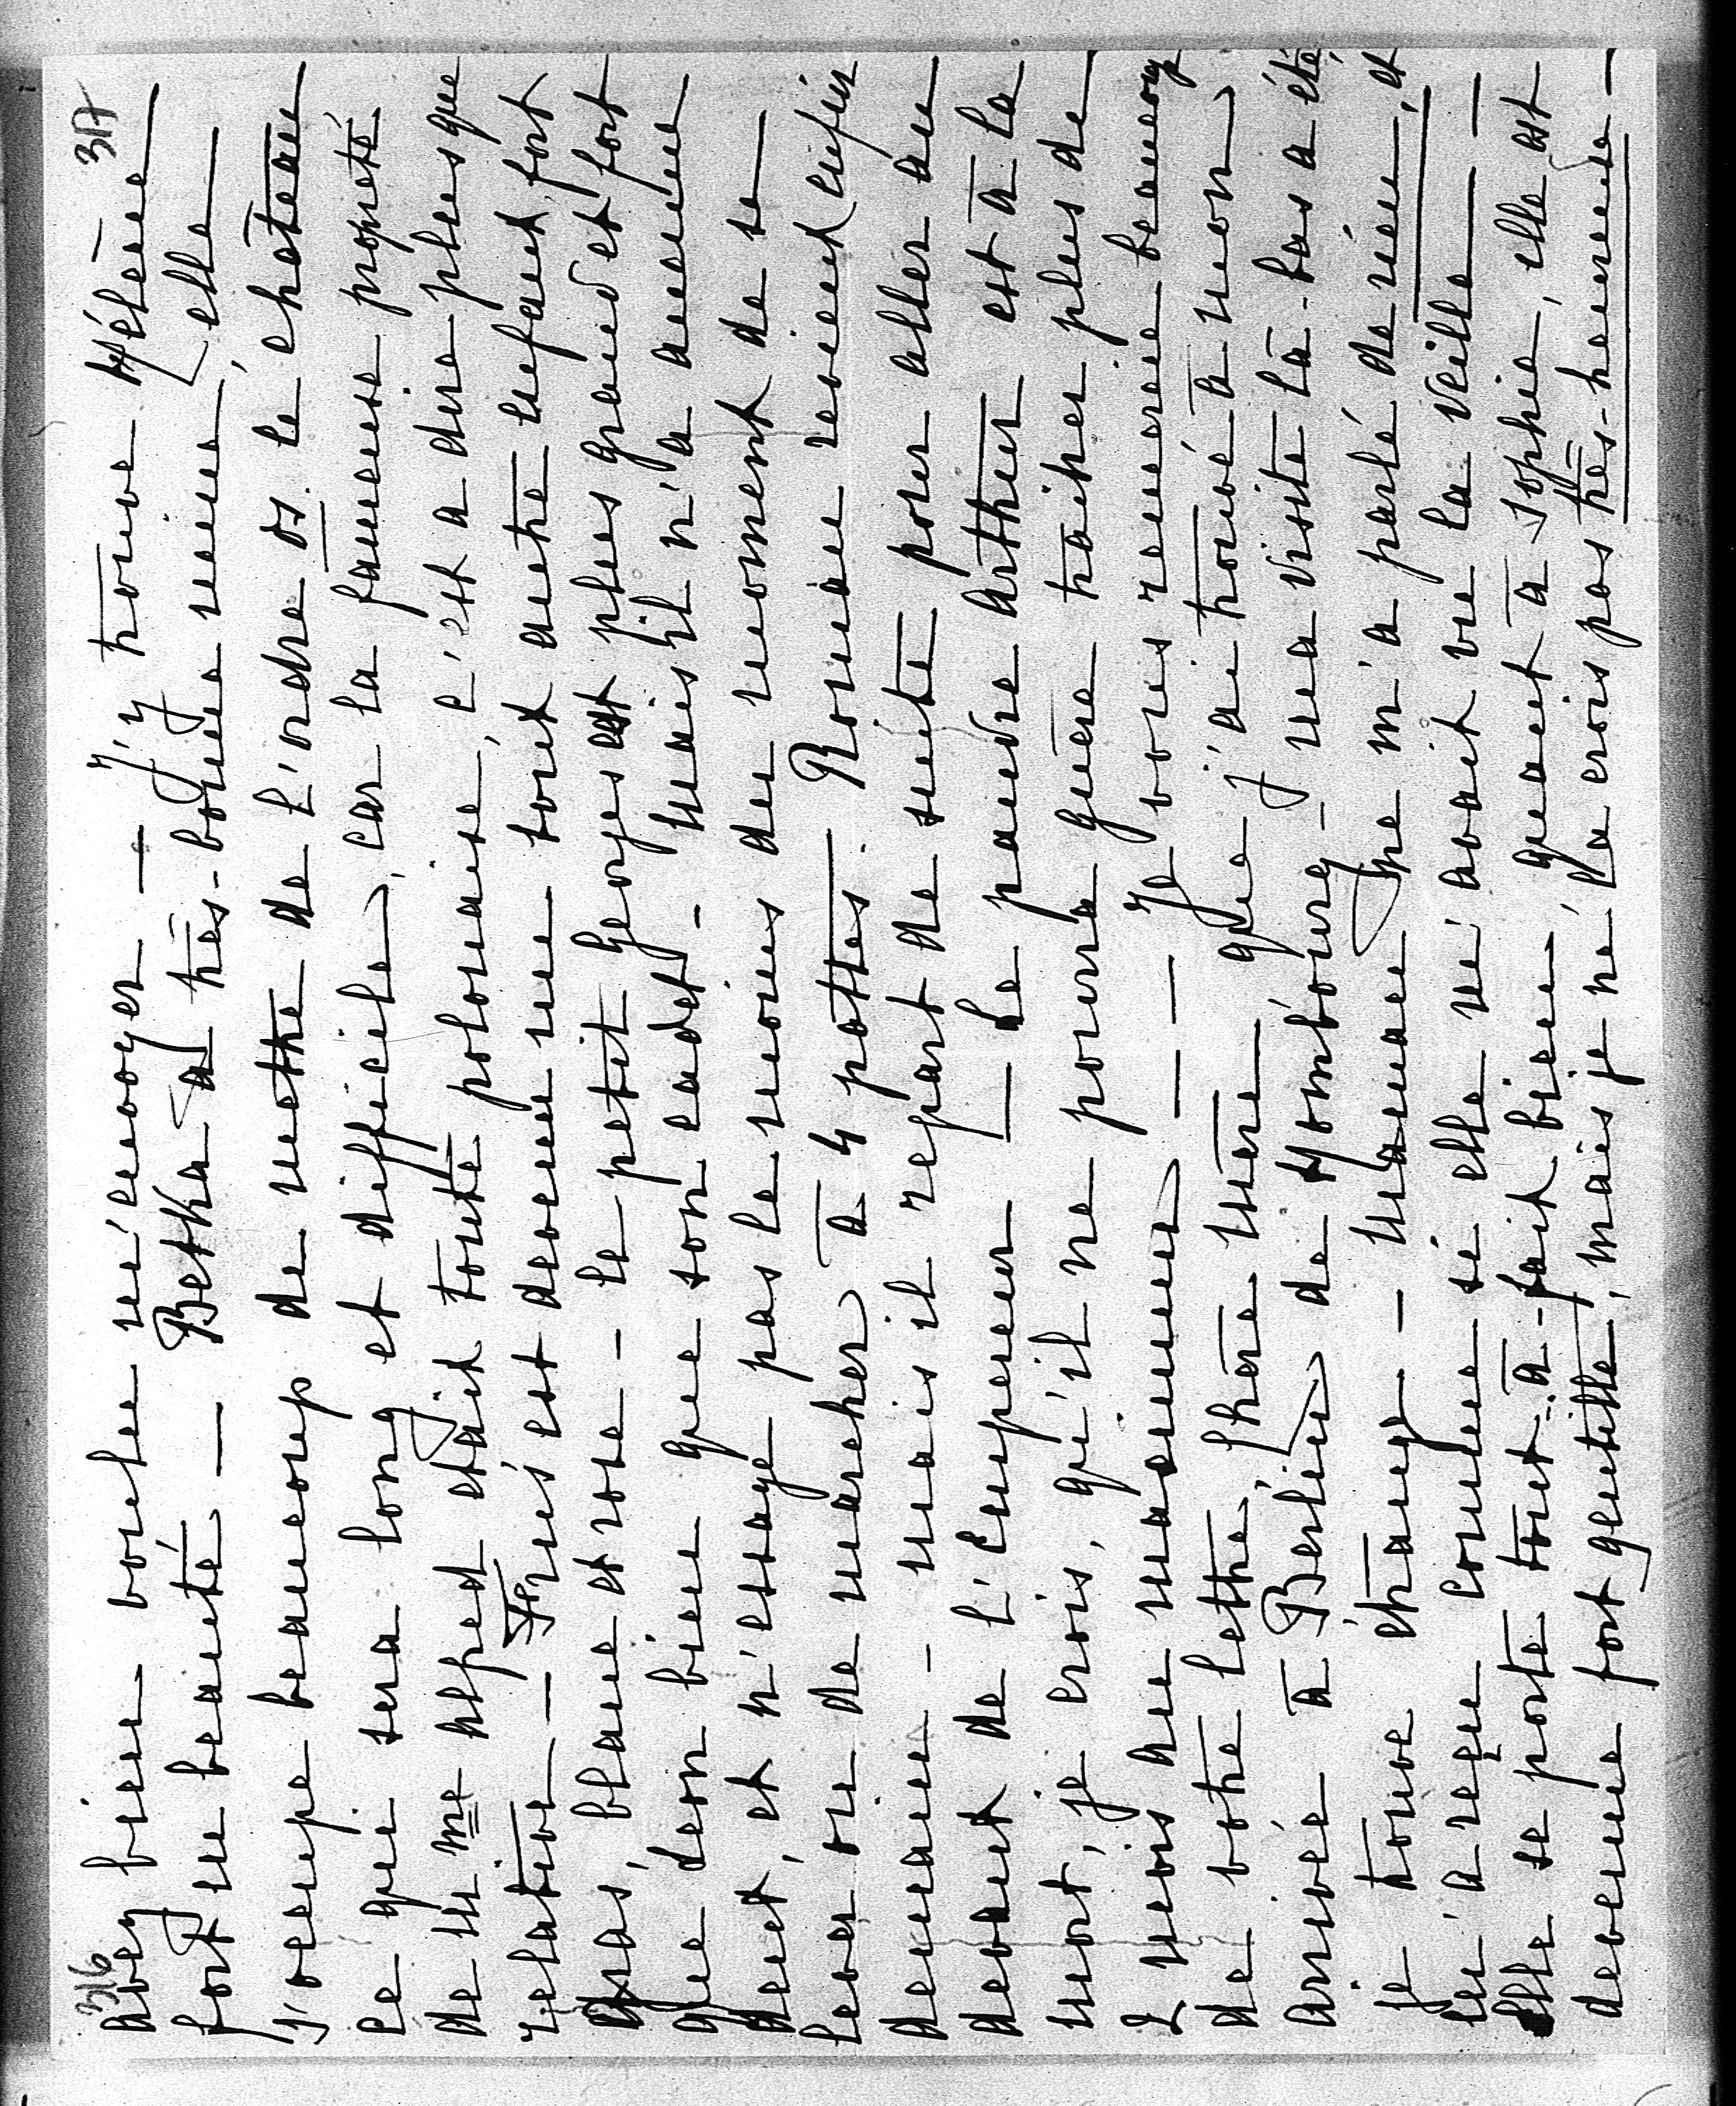 316 317
avez bien voulu m'envoyer — J'y trouve Hélène
fort en beauté — Betka a très-bonne mine, elle
s'occupe beaucoup de mettre de l'ordre os. le château
ce qui sera long et difficile, car la fameuse propreté
de Mme Alfred était toute polonaise, c'est a dire plus que
relative — est devenu tout autre enfant, fort
gras, blanc et rose — le petit Georges est plus grand et fort
que Léon bien que son cadet — mais il n'a aucune
dent, et n'essaye pas le moins du moment de se
lever ou de marcher à 4 pattes. Roman revient enfin
demain — mais il repart de suite pour aller au
devant de l'Empereur — Le pauvre Arthur est à la
mort, je crois, qu'il ne pourra guère traîner plus de
2 mois au maximum — — — Je vous remercie beaucoup
de votre lettre, chère Mère que j'ai trouvé à mon
arrivée à Berlin de Hombourg — ma visite là-bas a été
je trouve étrange — Maman ne m'a parlé de rien, et
m'a reçue comme si elle m'avait vue la veille —
Elle se porte tout-à-fait bien. quant à Sophie, elle est
devenue fort gentille, mais je ne la crois pas très-heureuse —